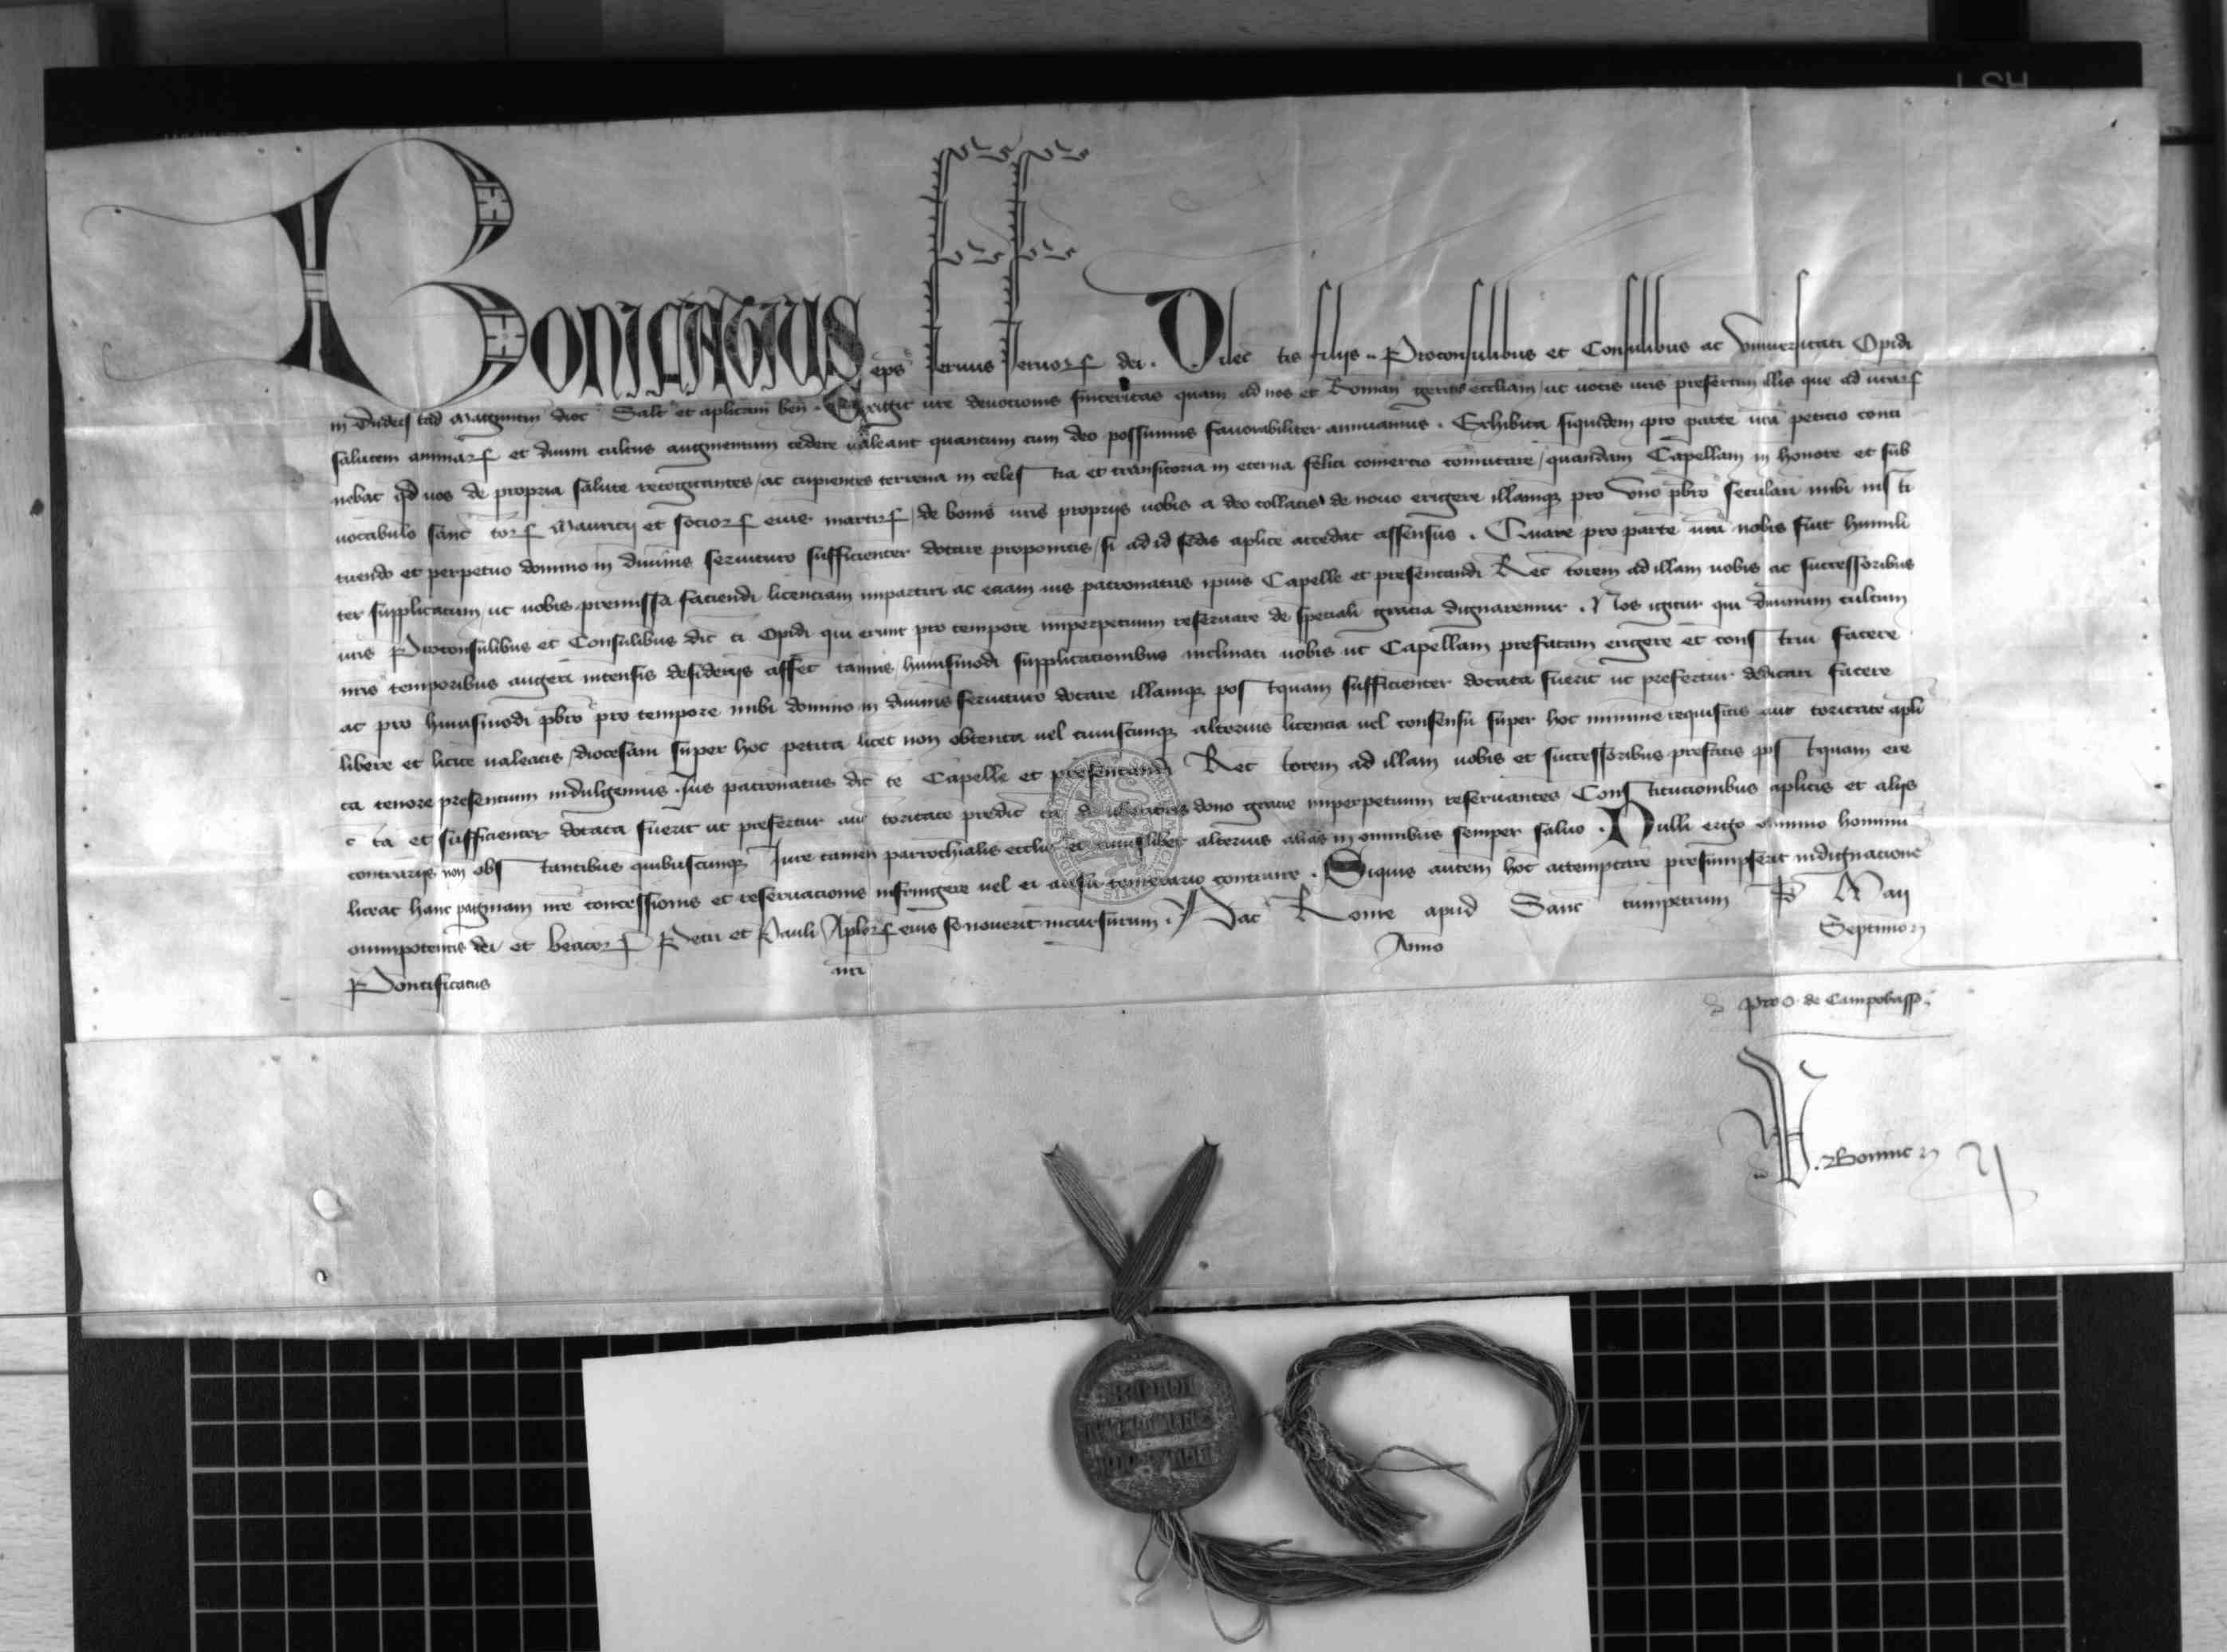 Bonifatius eps seruus seruorꝭ dei . Dilec tis filijs .. Proconsulibus et Consulibus ac Vniuersitati Opidi
in Magutin dioc Salt et aplicam ben . Exigit ure deuotionis sinceritas quam ad nos et Roman geritis eccliam / ut uotis uris presertim illis que ad urarꝭ
salutem animarꝭ et diuini cultus augmentum cedere ualeant quantum cum deo possumus fauorabiliter annuamus . Exhibita siquidem pro parte ura petitio conti
nebat qd uos de propria salute recogitantes / ac cupientes terrena in celes tia et transitoria in eterna felici comertio comutare / quandam Capellam in honore et sub
uocabulo sanc torꝭ Mauricij et sociorꝭ eius martirꝭ / de bonis uris proprijs uobis a deo collatis de nouo erigere illamqꝫ pro vno pbro seculari inibi insti
tuendo et perpetuo domino in diuinis seruituro sufficienter dotare proponitis / si ad id sedis aplice accedat assensus . Quare pro parte ura nobis fuit humili
ter supplicatum ut uobis premissa faciendi licentiam impartiri ac etiam ius patronatus ipsius Capelle et presentandi Rec torem ad illam uobis ac successoribus
uris Proconsulibus et Consulibus dic ti Opidi qui erunt pro tempore imperpetuum reseruare de speciali gratia dignaremur . Nos igitur qui diuinum cultum
nris temporibus augeri intensis desiderijs affec tamus / huiusmodi supplicationibus inclinati uobis ut Capellam prefatam erigere et cons trui facere
ac pro huiusmodi pbro pro tempore inibi domino in diuinis seruituro dotare illamqꝫ pos tquam sufficienter dotata fuerit ut prefertur dedicari facere
libere et licite ualeatis / diocesani super hoc petita licet non obtenta uel cuiuscunqꝫ alterius licentia uel consensu super hoc minime requisitis auc toritate apli
ca tenore presentium indulgemus . Jus patronatus dic te Capelle et presentandi Rec torem ad illam uobis et successoribus prefatis pos tquam ere
c ta et sufficienter dotata fuerit ut prefertur auc toritate predic ta de uberioris dono gratie imperpetuum reseruantes / Cons titutionibus aplicis et alijs
contrarijs non obs tantibus quibuscunqꝫ Jure tamen parrochialis ecclie et cuiuslibet alterius alias in omnibus semper saluo . Nulli ergo omnino hominum
liceat hanc paginam nre concessionis et reseruationis infringere uel ei ausu temerario contraire . Siquis autem hoc attemptare presumpserit indignationem
omnipotentis dei et beatorꝭ Petri et Pauli Aplorꝭ eius se nouerit incursurum . Dat Rome apud Sanc tumpetrum Maij
Pontificatus nri Anno Septimo
pro O. de Campobasso.
Boninc